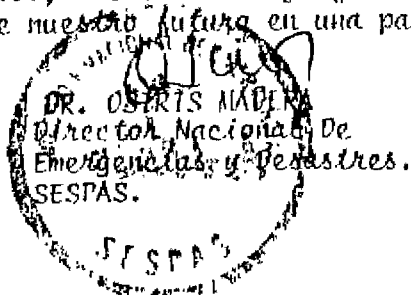 e nuestro futuro en una pa
DR. OSIRIS MADERA
Director Nacional De
Emergencias y Desastres.
SESPAS.
SESPAS